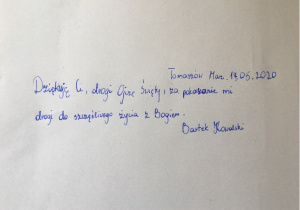 Tomaszów Maz. 17.05.2020
Dziękuję Ci, drogi Ojcze Święty, za pokazanie mi
drogi do szczęśliwego życia z Bogiem.
Bartek Kowalski